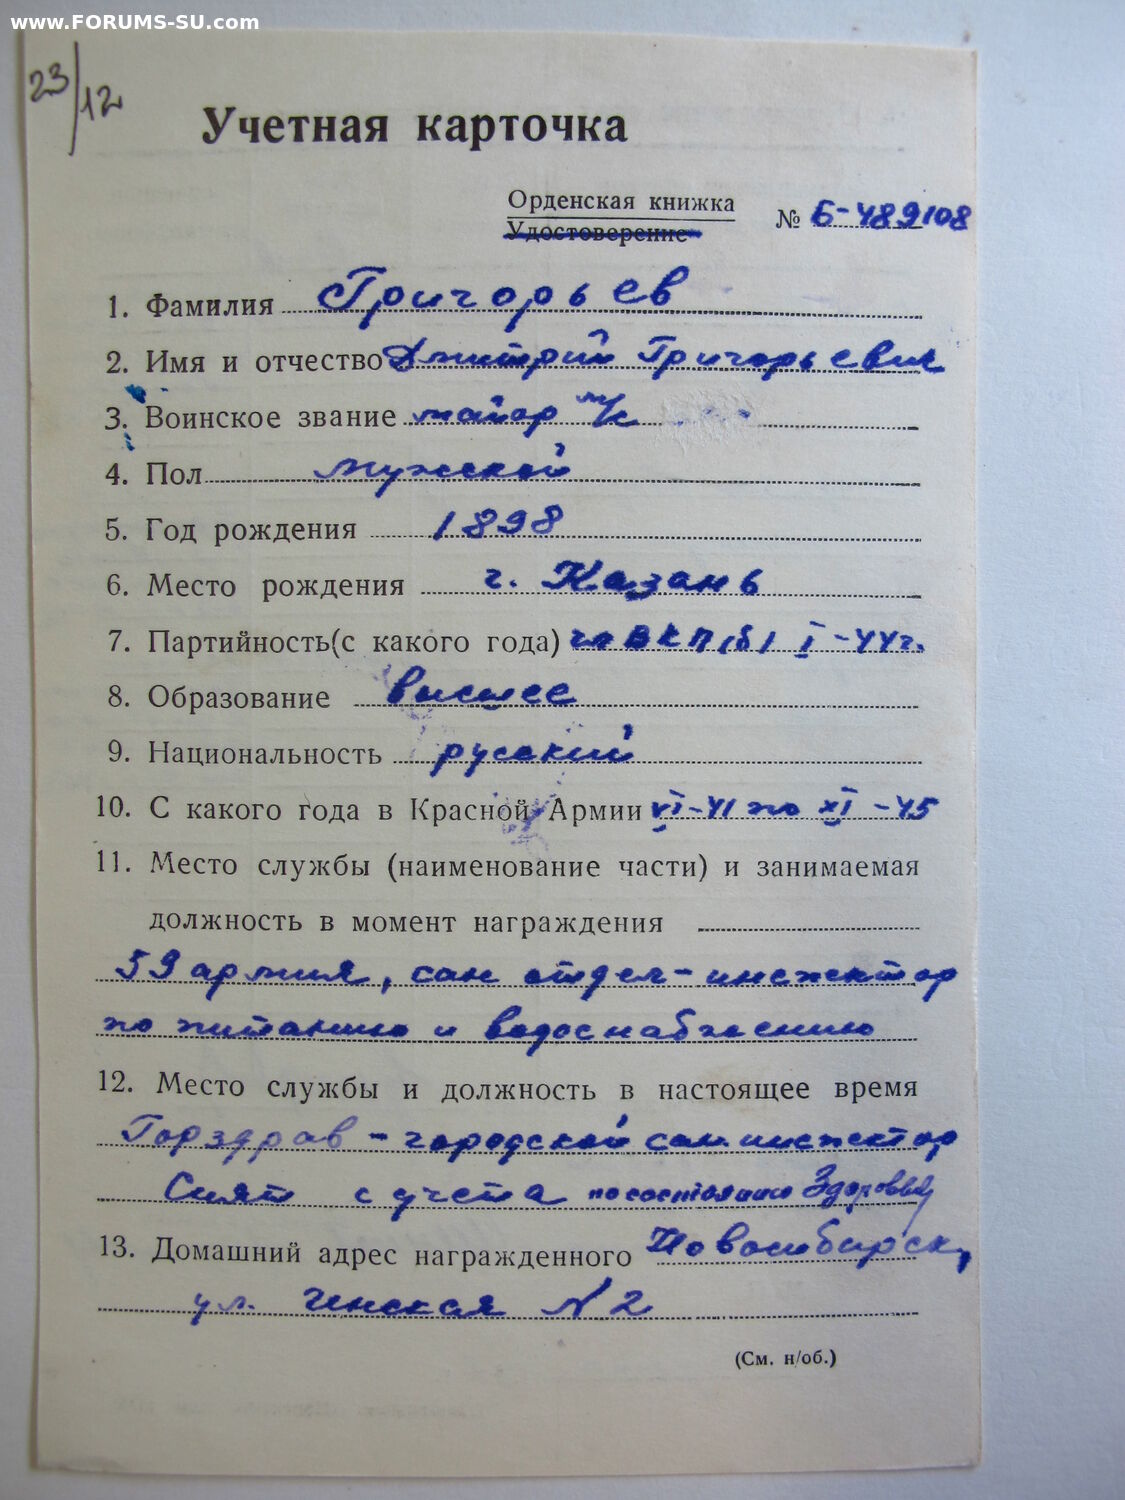 www.FORUMS-SU.com
23/12
Учетная карточка
Орденская книжка
Удостоверение
№ Б-489108
1. Фамилия Григорьев
2. Имя и отчество Дмитрий Григорьевич
3. Воинское звание майор м/с
4. Пол мужской
5. Год рождения 1898
6. Место рождения г. Казань
7. Партийность(с какого года) чл ВКП(б) I-44г.
8. Образование высшее
9. Национальность русский
10. С какого года в Красной Армии VI-41 по XI-45
11. Место службы (наименование части) и занимаемая
должность в момент награждения
59 армия, сан отдел-инспектор
по питанию и водоснабжению
12. Место службы и должность в настоящее время
Горздрав - городской сан. инспектор
Снят с учета по состоянию Здоровья
13. Домашний адрес награжденного Новосибирск,
ул. N 2
(См. н/об.)